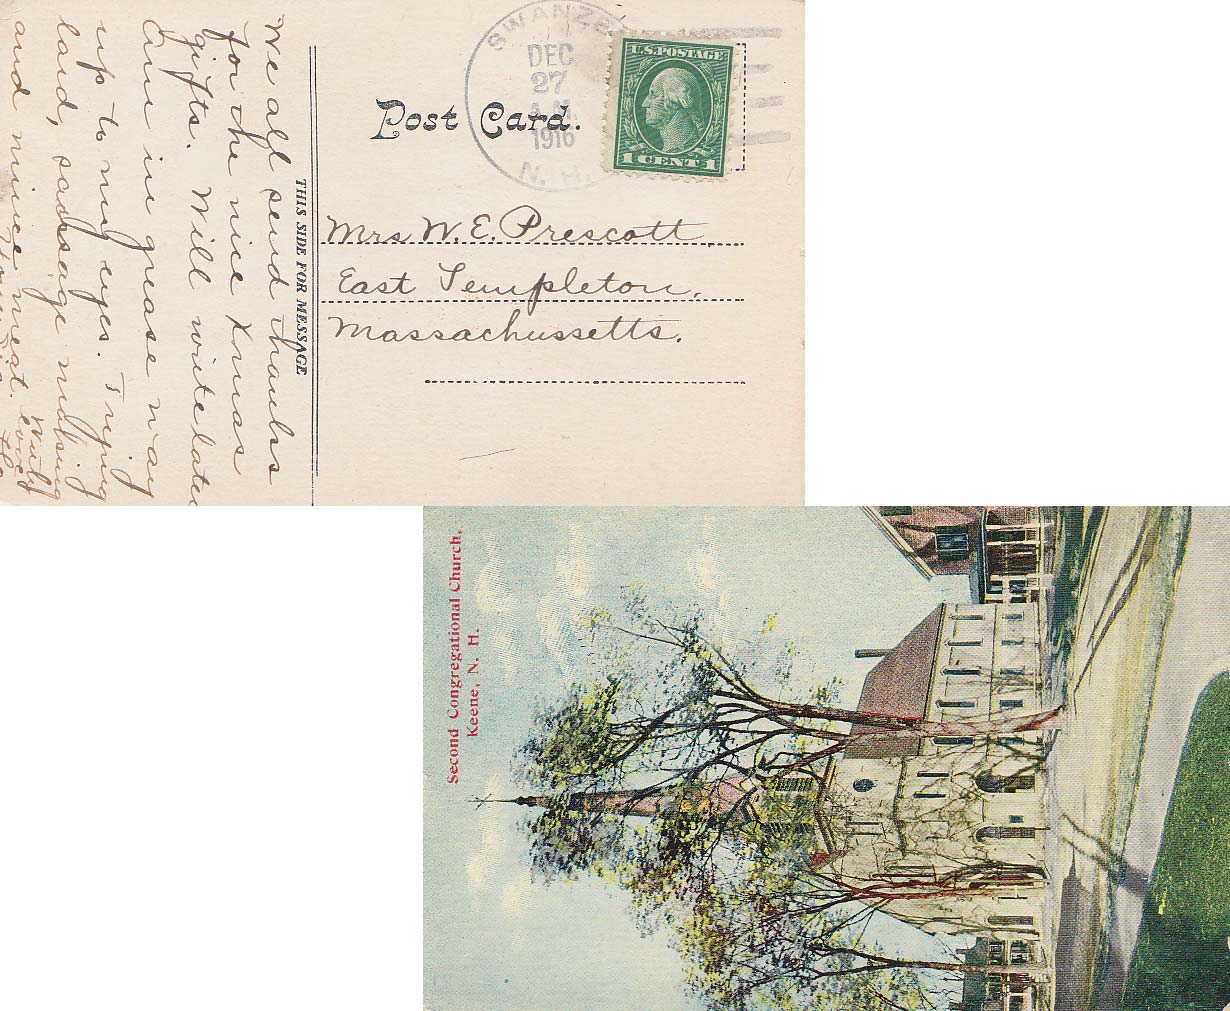 SWANZE
DEC
27
A.M.
1916
N. H.
U.S. POSTAGE
1 CENT 1
Post Card.
THIS SIDE FOR MESSAGE
Mrs W. E. Prescott,
East Templeton,
Massachussetts.
We all send thanks
for the nice Xmas
gifts. Will write later
Am in grease way
up to my eyes. Trying
lard, sausage making
and mince meat.
With
love
Second Congregational Church,
Keene, N. H.